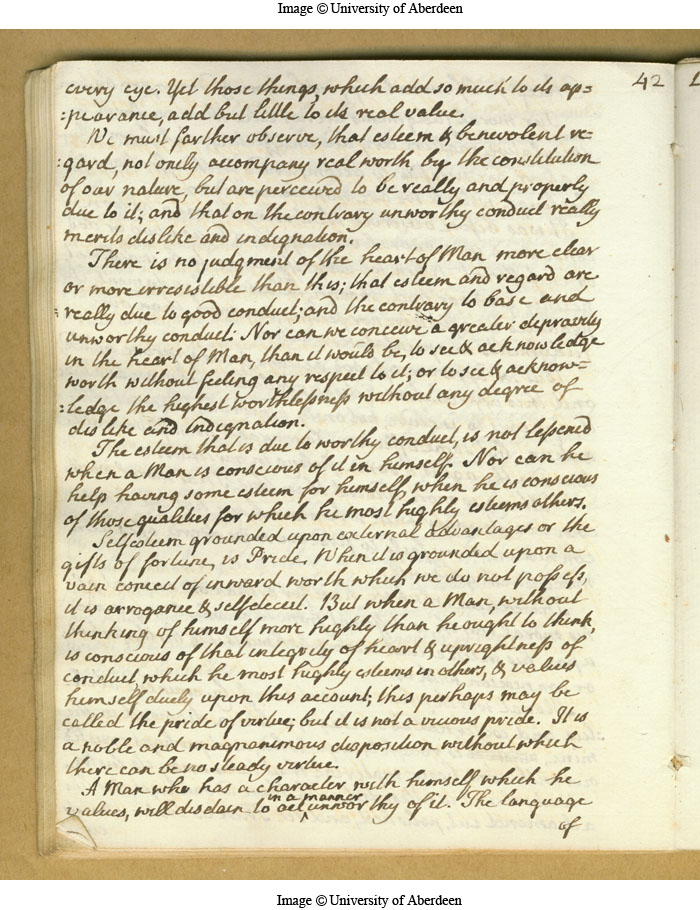 Image © University of Aberdeen
42
every eye. Yet those things, which add so much to its ap=
:pearance, add but little to its real value.
We must farther observe, that esteem & benevolent re=
:gard, not onely accompany real worth by the constitution
of our nature, but are perceived to be really and properly
due to it; and that on the contrary unworthy conduct really
merits dislike and indignation.
There is no judgment of the heart of Man more clear
or more irresistible than this; that esteem and regard are
really due to good conduct; and the contrary to base and
unworthy conduct. Nor can we conceive a greater depravity
in the heart of Man, than it would be, to see & acknowledge
worth without feeling any respect to it; or to see & acknow=
:ledge the highest worthlessness without any degree of
dislike and indignation.
The esteem that is due to worthy conduct, is not lessened
when a Man is conscious of it in himself. Nor can he
help having some esteem for himself, when he is conscious
of those qualities for which he most highly esteems others.
Selfesteem grounded upon external advantages or the
gifts of fortune, is Pride. When it is grounded upon a
vain conceit of inward worth which we do not possess,
it is arrogance & selfdeceit. But when a Man, without
thinking of himself more highly than he ought to think,
is conscious of that integrity of heart & uprightness of
conduct which he most highly esteems in others, & values
himself duely upon this account; this perhaps may be
called the pride of virtue; but it is not a vicious pride. It is
a noble and magnanimous disposition without which
there can be no steady virtue.
A Man who has a character with himself which he
values, will disdain to act in a manner unworthy of it. The language
of
Image © University of Aberdeen